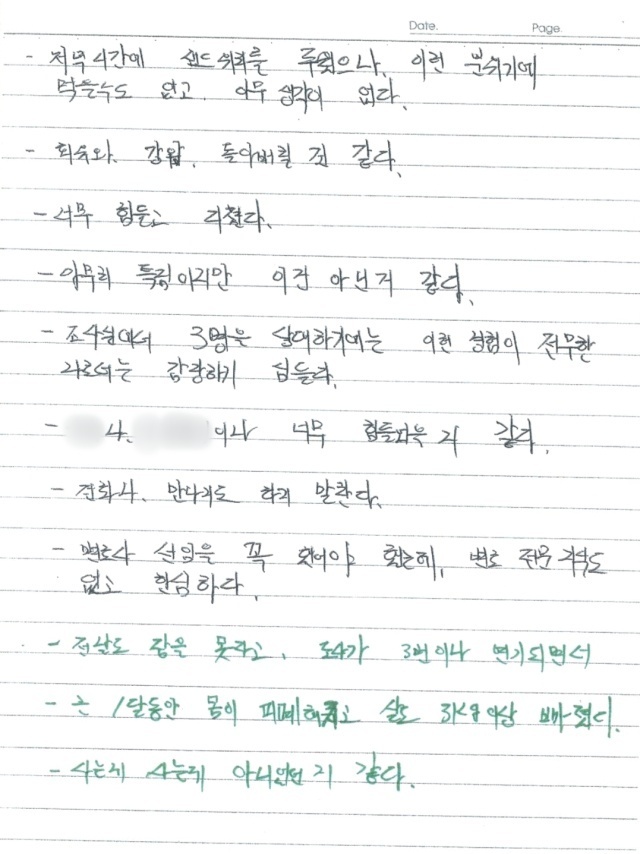 Date. Page.
- 저녁시간에 샌드위치를 주었으나, 이런 분위기에
먹을수도 없고, 아무 생각이 없다.
- 회유와, 강압, 돌아버릴 것 같다.
- 너무 힘들고 지쳤다.
- 아무리 특검이지만 이건 아닌거 같다.
- 조사실에서 3명을 상대하기에는 이런 경험이 전무한
나로서는 감당하기 힘들다.
- 나, 이나 너무 힘들 거 같다.
- 전화나, 만나지도 하지 말란다.
- 변호사 선임을 꼭 했어야 했는데, 변호 지식도
없고 한심하다.
- 잠을 못자고, 조사가 3번이나 연기되면서
- 근 1달동안 몸이 피폐해지고 살도 3kg이상 빠졌다.
- 사는게 사는게 아니었던 거 같다.